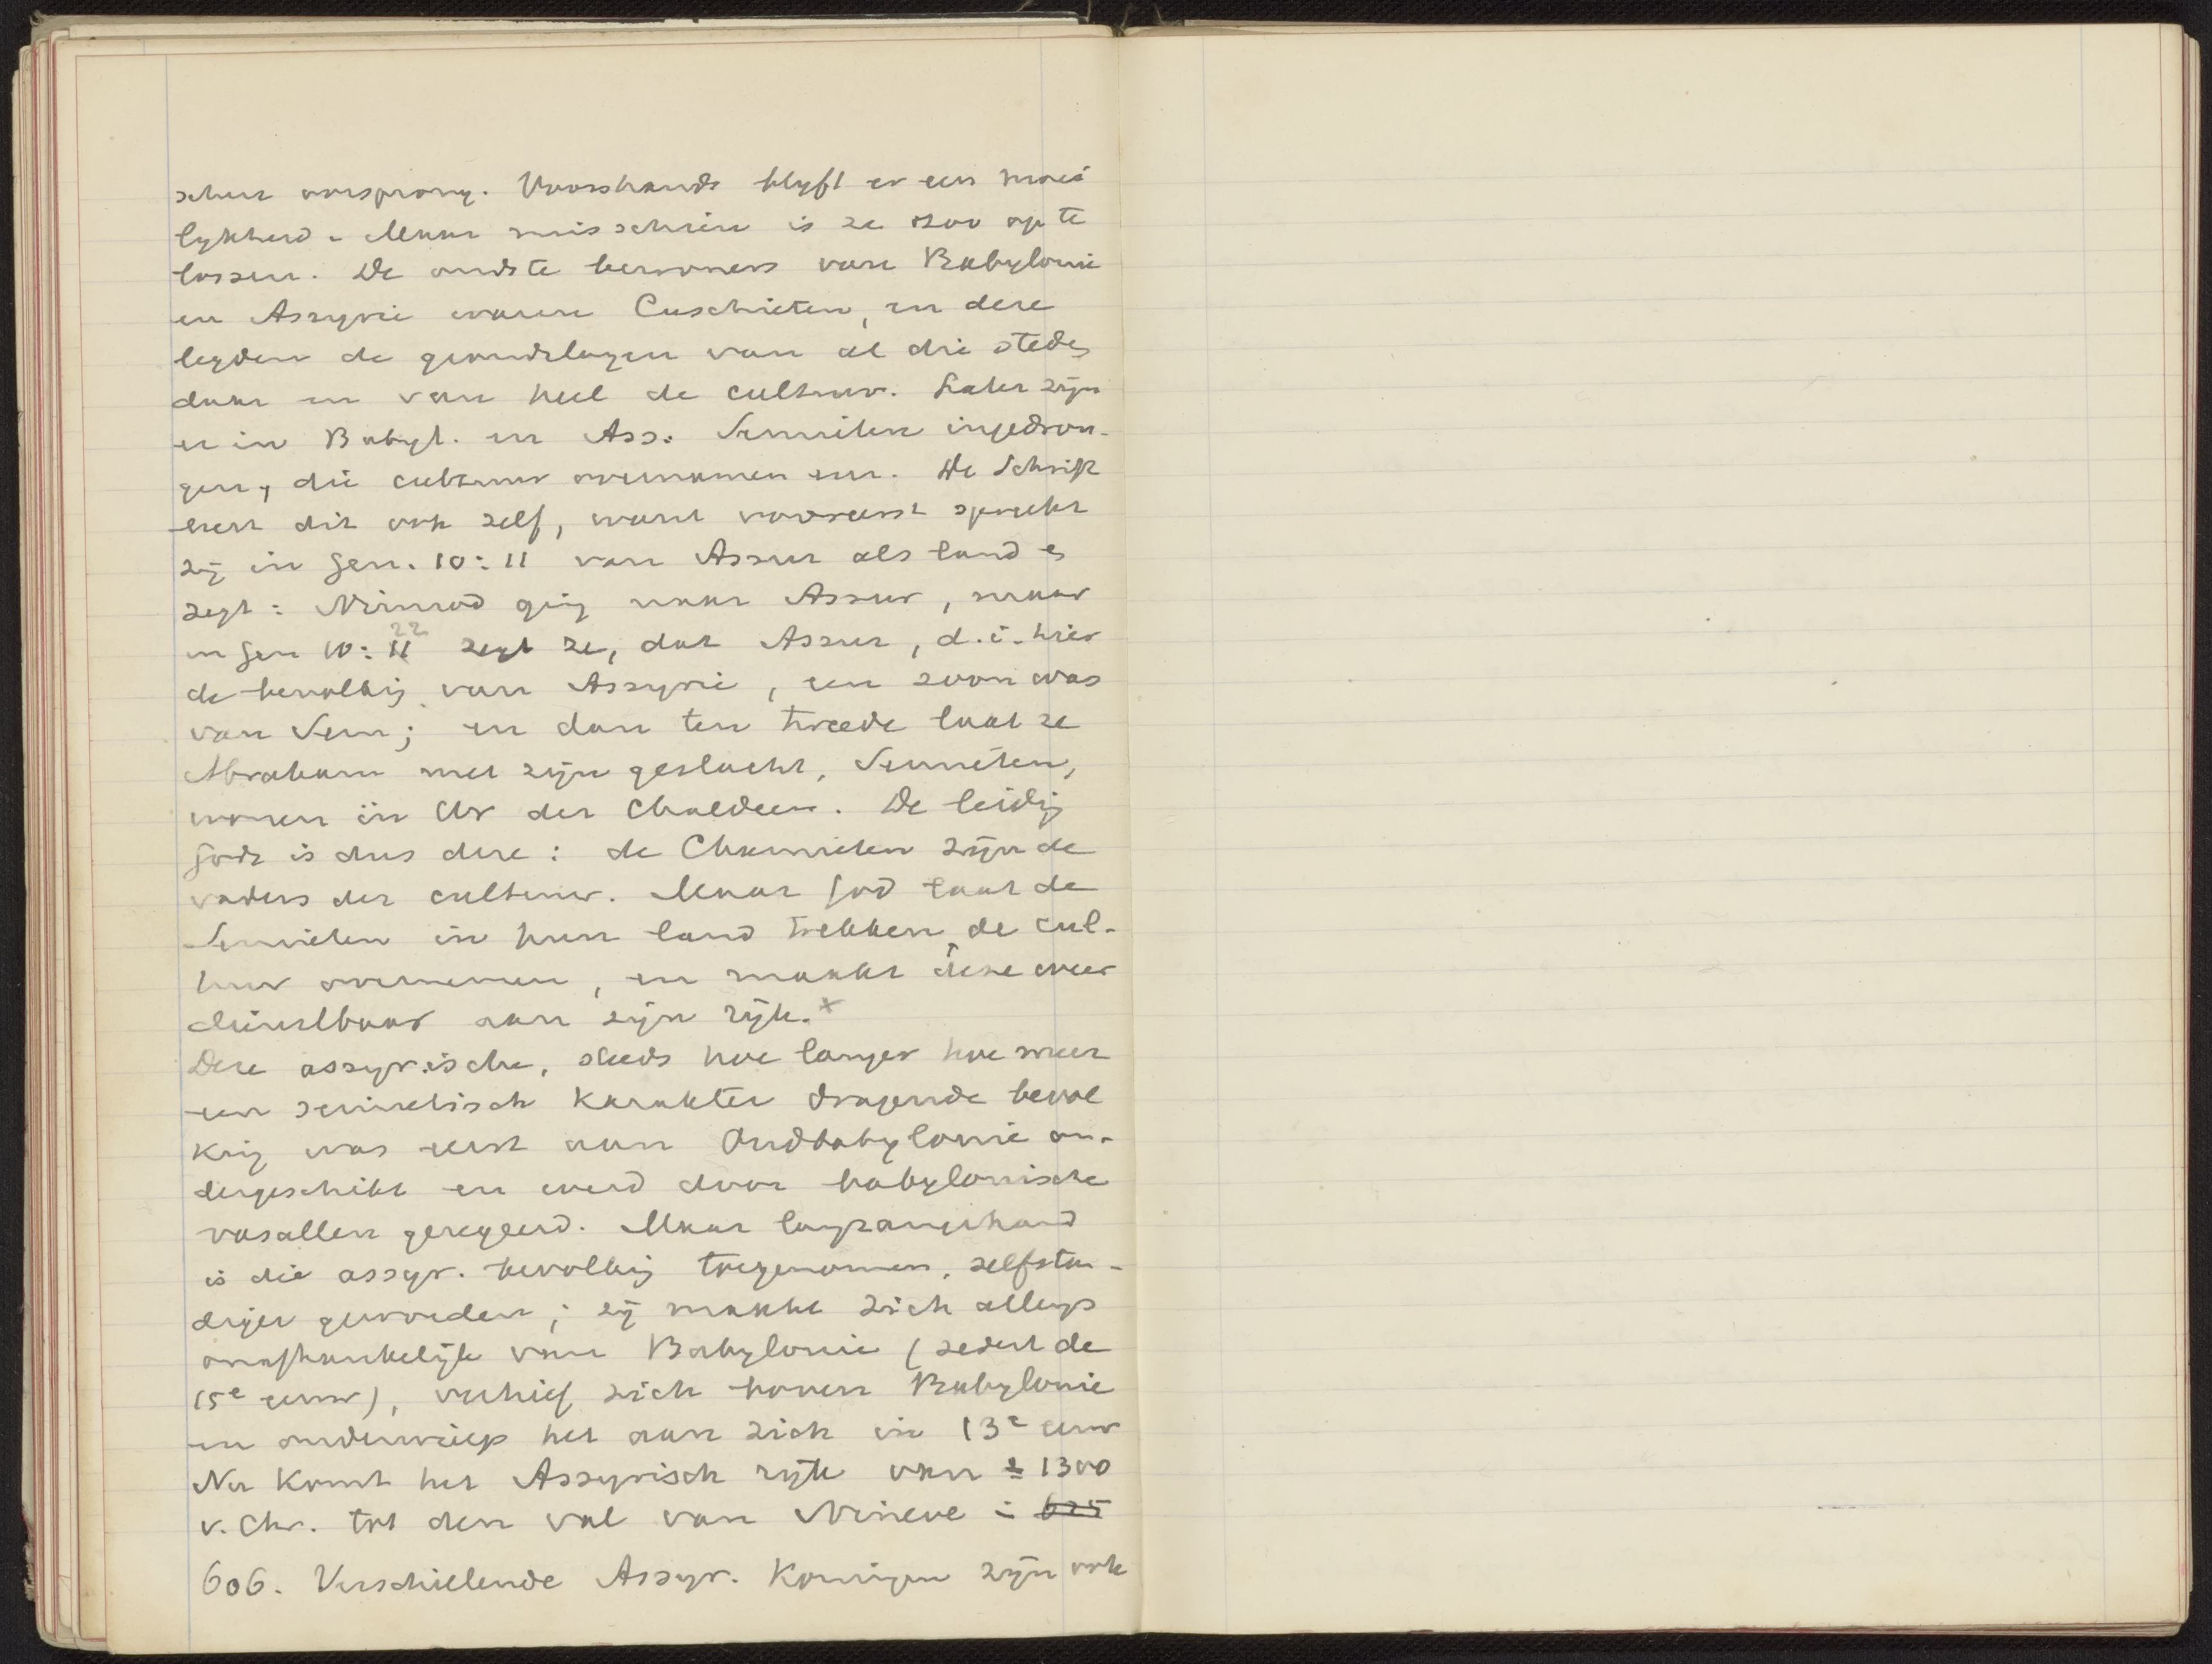 schen oorsprong. Voorshands blyft er een moei
lykheid. Maar misschien is ze zoo op te
lossen. De oudste bewoners van Babylonie
en Assyrie waren Cuschieten, en deze
legden de grondslagen van al die steden
daar en van heel de cultuur. Later zijn
er in Babyl. en Ass. Semieten ingedron-
gen, die cultuur overnamen enz. De Schrift
leert dit ook zelf, want vooreerst spreekt
zij in Gen. 10:11 van Assur als land en
zegt: Nimrod ging naar Assur, maar
in Gen 10:22 zegt ze, dat Assur, d.i. hier
de bevolking van Assyrie, een zoon was
van Sem; en dan ten tweede laat ze
Abraham met zijn geslacht, Semieten,
wonen in Ur der Chaldeen. De leiding
Gods is dus deze: de Chamieten zijn de
vaders der cultuur. Maar God laat de
Semieten in hun land trekken, de cul-
tuur overnemen, en maakt deze weer
dienstbaar aan zijn rijk. x
Deze assyrische, steeds hoe langer hoe meer
een semietisch karakter dragende bevol
king was eerst aan Oudbabylonie on-
dergeschikt en werd door babylonische
vasallen geregeerd. Maar langzamerhand
is die assyr. bevolking toegenomen, zelfstan-
diger geworden; zij maakt zich allengs
onafhankelijk van Babylonie (sedert de
15e eeuw), verhief zich boven Babylonie
en onderwierp het aan zich in 13e eeuw
Nu komt het Assyrisch rijk van ± 1300
v. Chr. tot den val van Nineve in 625
606. Verschillende Assyr. Koningen zijn ook